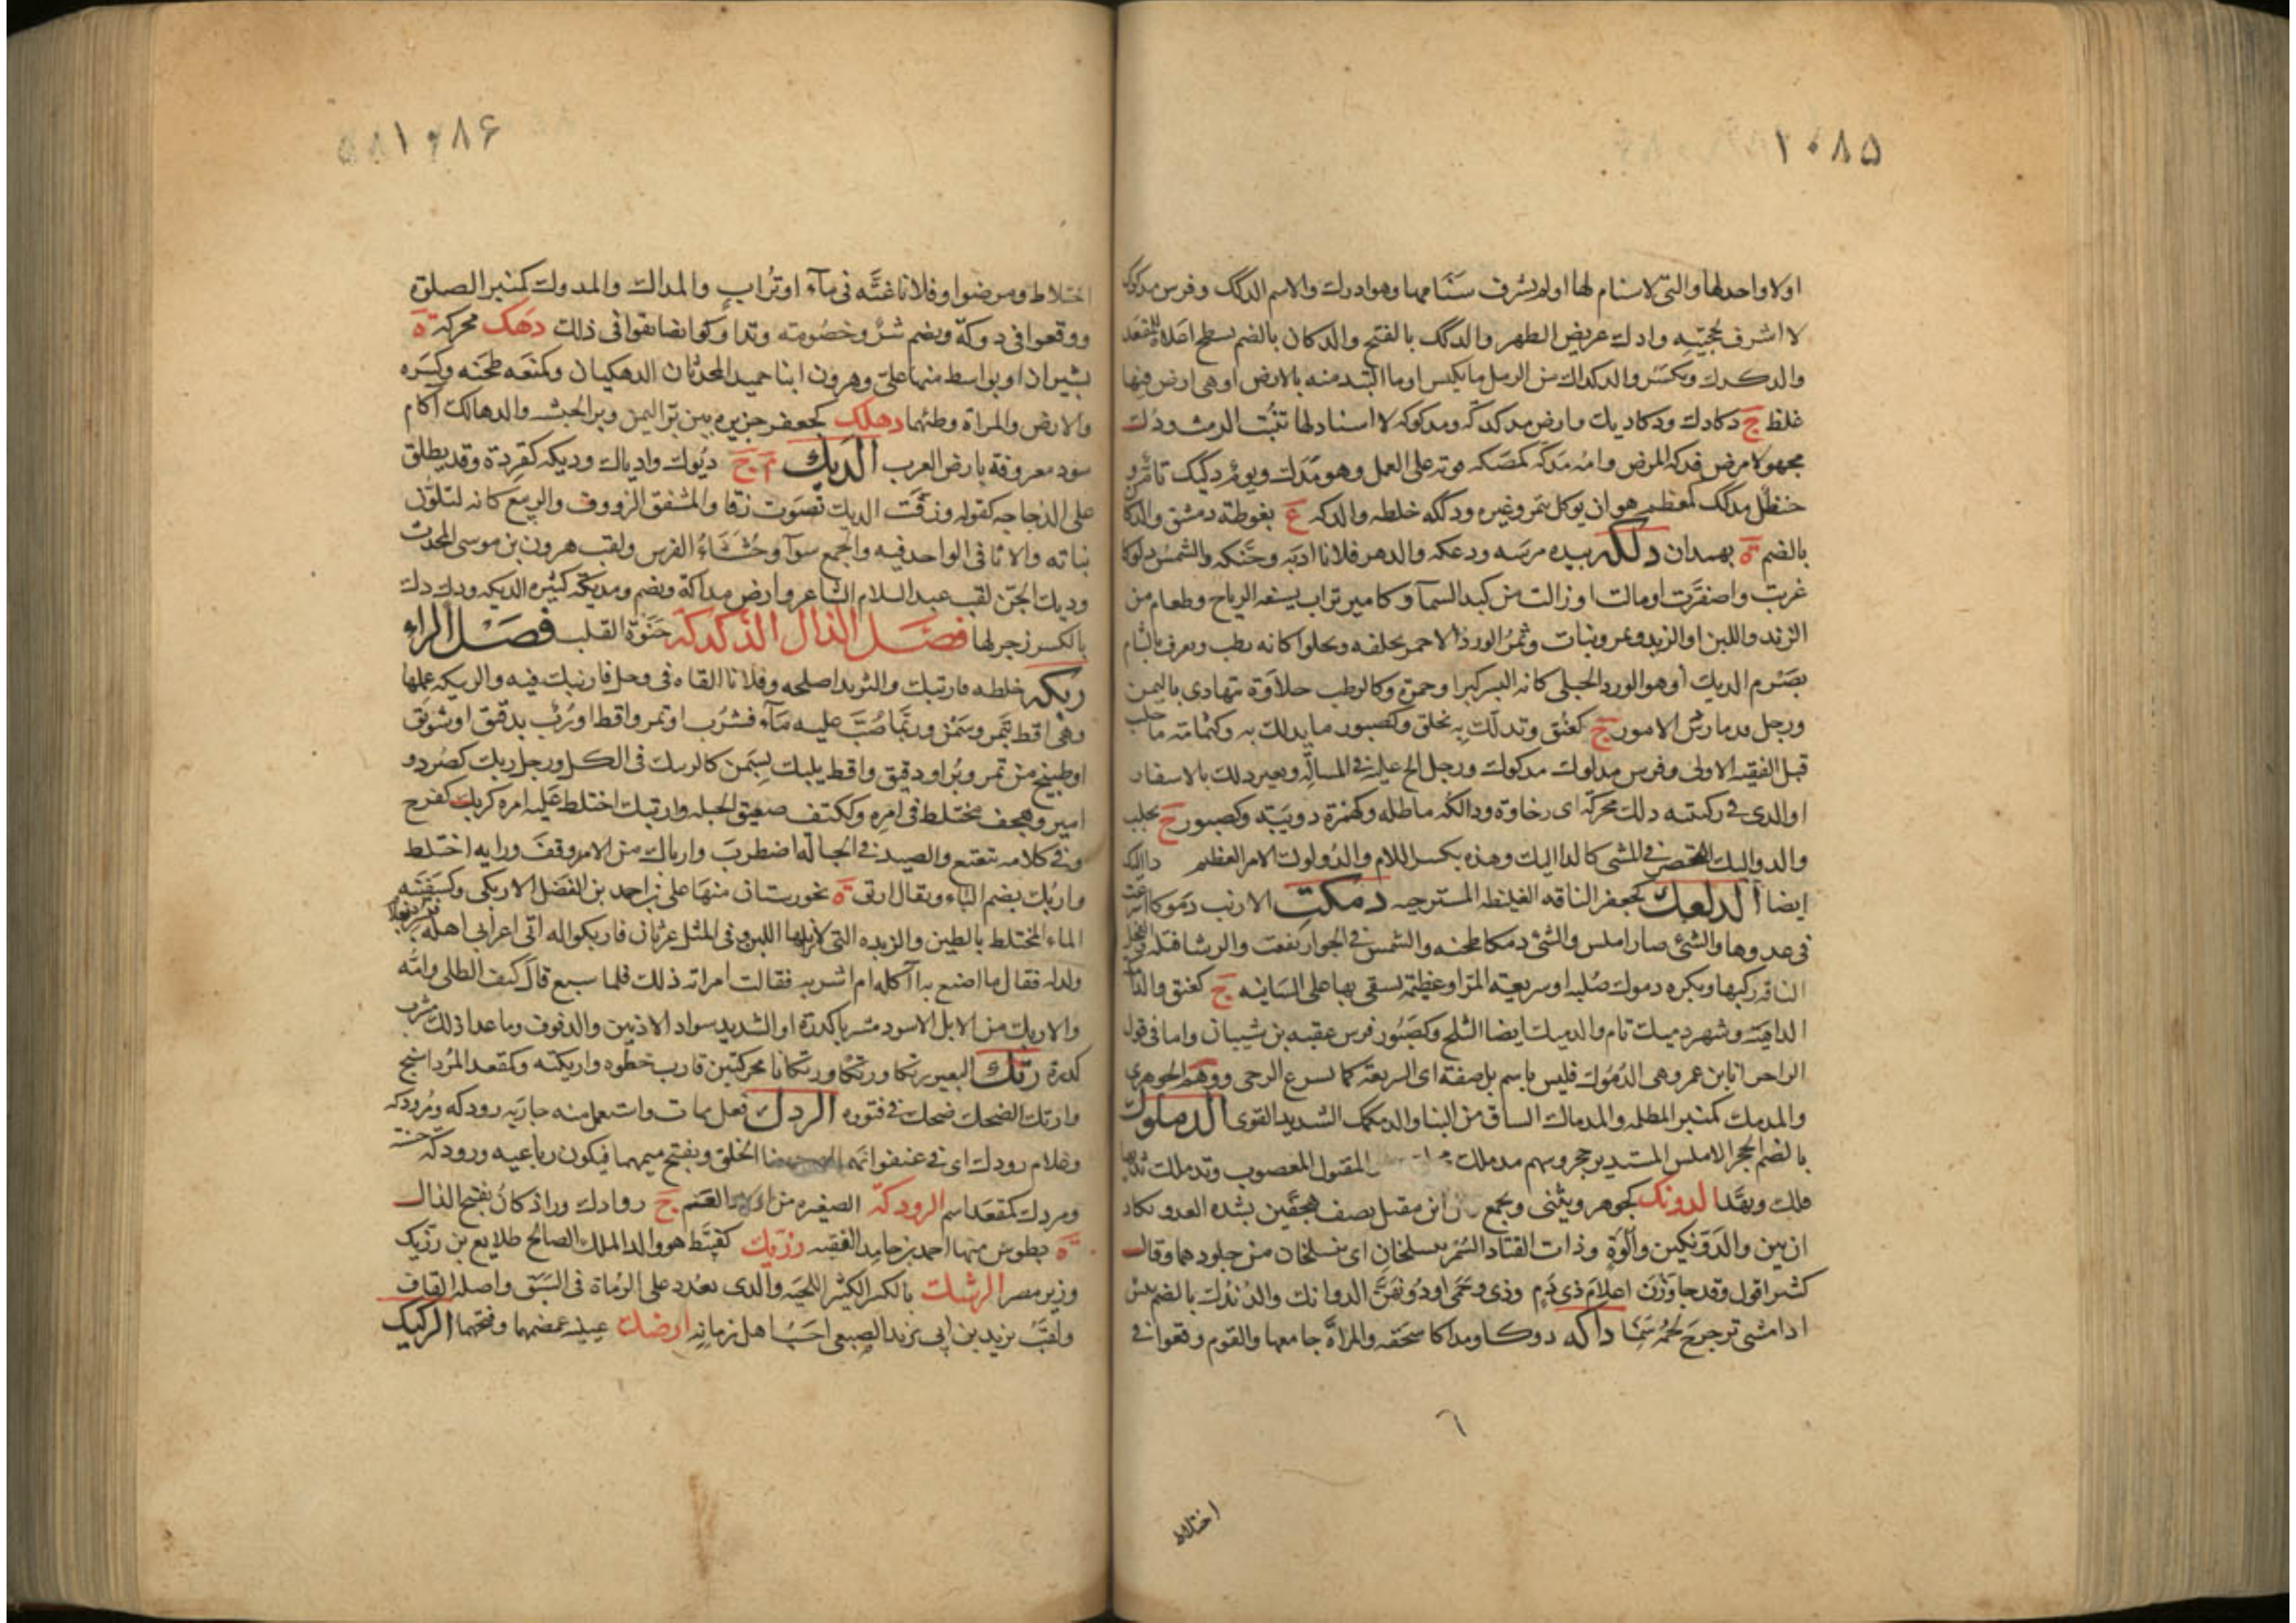 ١٠٨٥
او لا واحد لها والتی لا سنام لها او لم یشرف سنامها وهو ادك والاسم الدکک وفرس مدکوك
لا اشرف لحجبته وادك عریض الظهر والدکک بالفتح والدکان بالضم یسطح اعلاه للمقعد
والدکدك ویکسر والدکداك من الرمل ما یکبس او ما التبد منه بالارض او هی ارض فیها
غلظ ج دکادك ودکادیك وارض مدکدکه ومدکوکه لا اسناد لها تنبت الرمث ودك
مجهولا مرض فدکه المرض وامه مدکه کمصکه قویه علی العمل وهو مدك ویوم دکیک تام و
حنظل مدکک کمعظم هو ان یوکل بتمر وغیره ودککه خلطه والدکه ع بغوطه دمشق والدکا
بالضم ة بهمدان دلکه بیده مرسه ودعکه والدهر فلانا ادبه وحنکه والشمس دلوکا
غربت واصفرت او مالت او زالت من کبد السمآ وکامیر تراب یسفه الریاح وطعام من
الزبد واللبن او الزبد وتمر ونبات وثمر الورد الاحمر یخلفه ویحلوا کانه رطب ویعرف بالشام
بصرم الدیك او هو الورد الجبلی کانه البسر کبرا وحمرة وکالرطب حلاوة یتهادی بالیمن
ورجل قد مارس الامور ج کعنق وتدلك به تخلق وکصبور ما یدلك به وکثمامة ما حلب
قبل الفیقه الاولی وفرس مدلوك مدکوك ورجل الح علیه فی المسالة وبعیر دلك بالاسفار
او الذی فی رکبته دلك محرکه ای رخاوة ودالکه ماطله وکهمزة دویبه وکصبور ج بحلب
والدوالیك التحفز فی المشی کالدالیك وهذه بکسر اللام والدولوك الامر العظیم دالیک
ایضا الدلعك کجعفر الناقه الغلیظه المسترخیه دمکت الارنب دموکا اسرعت
فی عدوها والشئ صار املس والشئ دمکا طحنه والشمس فی الجو ارتفعت والرشا فتله والفحل
الناقه رکبها وبکره دموك صلبه او سریعة المر او عظیمة یسقی بها علی السانیه ج کعنق والدامکه
الداهیة وشهر دمیك تام والدمیك ایضا الثلج وکصبور فرس عقبه بن شیبان واما فی قول
الراجز انا ابن عمر وهی الدموك فلیس باسم بل صفة ای السریعة کما یسرع الرحی ووهم الجوهری
والمدمك کمنبر المطلمه والمدماك الساق من البنا والدمکمک الشدید القوی الدملوك
بالضم الحجر الاملس المستدیر حجر وسهم مدملك المفتول المعصوب وتدملك ثدیها
فلك ویقد الدونک کجوهر ویثنی ویجمع ابن مقبل یصف هجفین بشده العدو یکاد
ان بین والدونکین والوة وذات القتاد السمر ینسلخان ای ینسلخان من جلودهما وقال
کثیر اقول وقد جاوزن اعلام ذی دم وذی وجمی او دونهن الدوانك والدندك بالضم من
اذا مشی ترجرج لحمه سمنا داکه دوکا ومداکا سحقه والمراة جامعها والقوم وقعوا فی
٦
اختلاط
١٠٨۶
اختلاط ومرضوا وفلانا غته فی مآء او تراب والمداك والمدوك کمنبر الصلاة
ووقعوا فی دوکة ویضم شر وخصومه وتداوکوا تضایقوا فی ذلك دهک محرکه ة
بشیراز او بواسط منها علی وهرون ابنا حمید المحدثان الدهکیان وکمنعه طحنه وکسره
والارض والمراة وطئهما دهلک کجعفر جزیره بین بر الیمن وبر الحبشه والدهالك آکام
سود معروفة بارض العرب الدیك م ج دیوك وادیاك ودیکه کقردة وقد یطلق
علی الدجاجه کقوله وزقت الدیك تصوت زقا والمشفق الرووف والربیع کانه لتلون
نباته والاثافی الواحد فیه والجمع سوآ وخششاء الفرس ولقب هرون بن موسی المحدث
ودیك الجن لقب عبد السلام الشاعر وارض مداکة ویضم ومدیکه کثیره الدیکه ودك دك
بالکسر زجر لها فصل الذال الذکذکة حنوة القلب فصل الراء
ربکه خلطه فارتبك والثرید اصلحه وفلانا القاه فی وحل فارتبك فیه والربیکه عملها
وهی اقط بتمر وسمن وربما صب علیه مآء فشرب او تمر واقط او رب بدقیق او سویق
او طبیخ من تمر وبر او دقیق واقط یلبك بسمن کالربیك فی الکل ورجل ربك کصرد و
امیر وهجف مختلط فی امره وککتف ضعیف الحیله وارتبك اختلط علیه امره کربك کفرح
وفی کلامه تتعتع والصید فی الحبالة اضطرب واربك من الامر وقف ورایه اختلط
واربك بضم الباء ویقال اربق ة بخورستان منها علی بن احمد بن الفضل الاربکی وکسفینه
الماء المختلط بالطین والزبده التی لا یزایلها اللبن وفی المثل غرثان فاربکوا له اتی اعرابی اهله فبشر بغلام
ولدله فقال ما اصنع به آآکله ام اشربه فقالت امراته ذلك فلما سبع قال کیف الطلی وامه
والاربك من الابل الاسود مشربا کدرة او الشدید سواد الاذنین والدفوف وما عدا ذلك مشرب
کدرة رتك البعیر رتکا ورتکا ورتکانا محرکتین قارب خطوه وارتکته وکمقعد المرداسنج
وارتك الضحك ضحك فی فتوره الردك فعل ممات واستعمل منه جاریه رودکه ومرودکه
وغلام رودك ای فی عنفوانهما الخلق وبفتح میمهما فیکون رباعیه ورودکه حسنه
ومردك کمقعد اسم الرودکة الصغیره من اولاد الغنم ج روادك وراذکان بفتح الذال
ة بطوس منها احمد بن حامد الفقیه رزیك کقبیط هو والد الملك الصالح طلایع بن رزیک
وزیر مصر الرشك بالکسر الکثیر اللحیه والذی یعدد علی الرماة فی السبق واصله القاف
ولقب یزید بن ابی یزید الضبعی احسب اهل زمانه ارضك عینیه غمضهما وفتحهما الرکیک